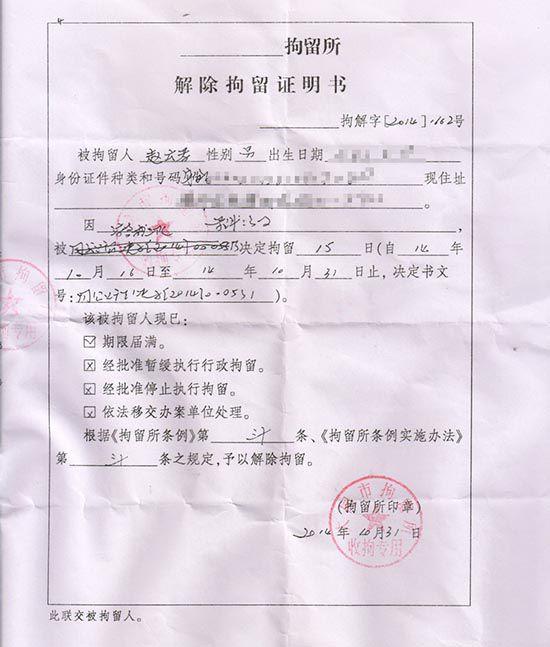 拘留所
解除拘留证明书
拘解字[2014]162号
被拘留人 性别 男 出生日期
身份证件种类和号码 现住址
因
被 决定拘留 15 日(自 14 年
10 月 16 日至 14 年 10 月 31 日止,决定书文
号: [2014] 0531 )。
该被拘留人现已:
☑ 期限届满。
☒ 经批准暂缓执行行政拘留。
☒ 经批准停止执行拘留。
☒ 依法移交办案单位处理。
根据《拘留所条例》第 条、《拘留所条例实施办法》
第 条之规定,予以解除拘留。
(拘留所印章)
2014 年 10 月 31 日
市拘留所
收拘专用
此联交被拘留人。